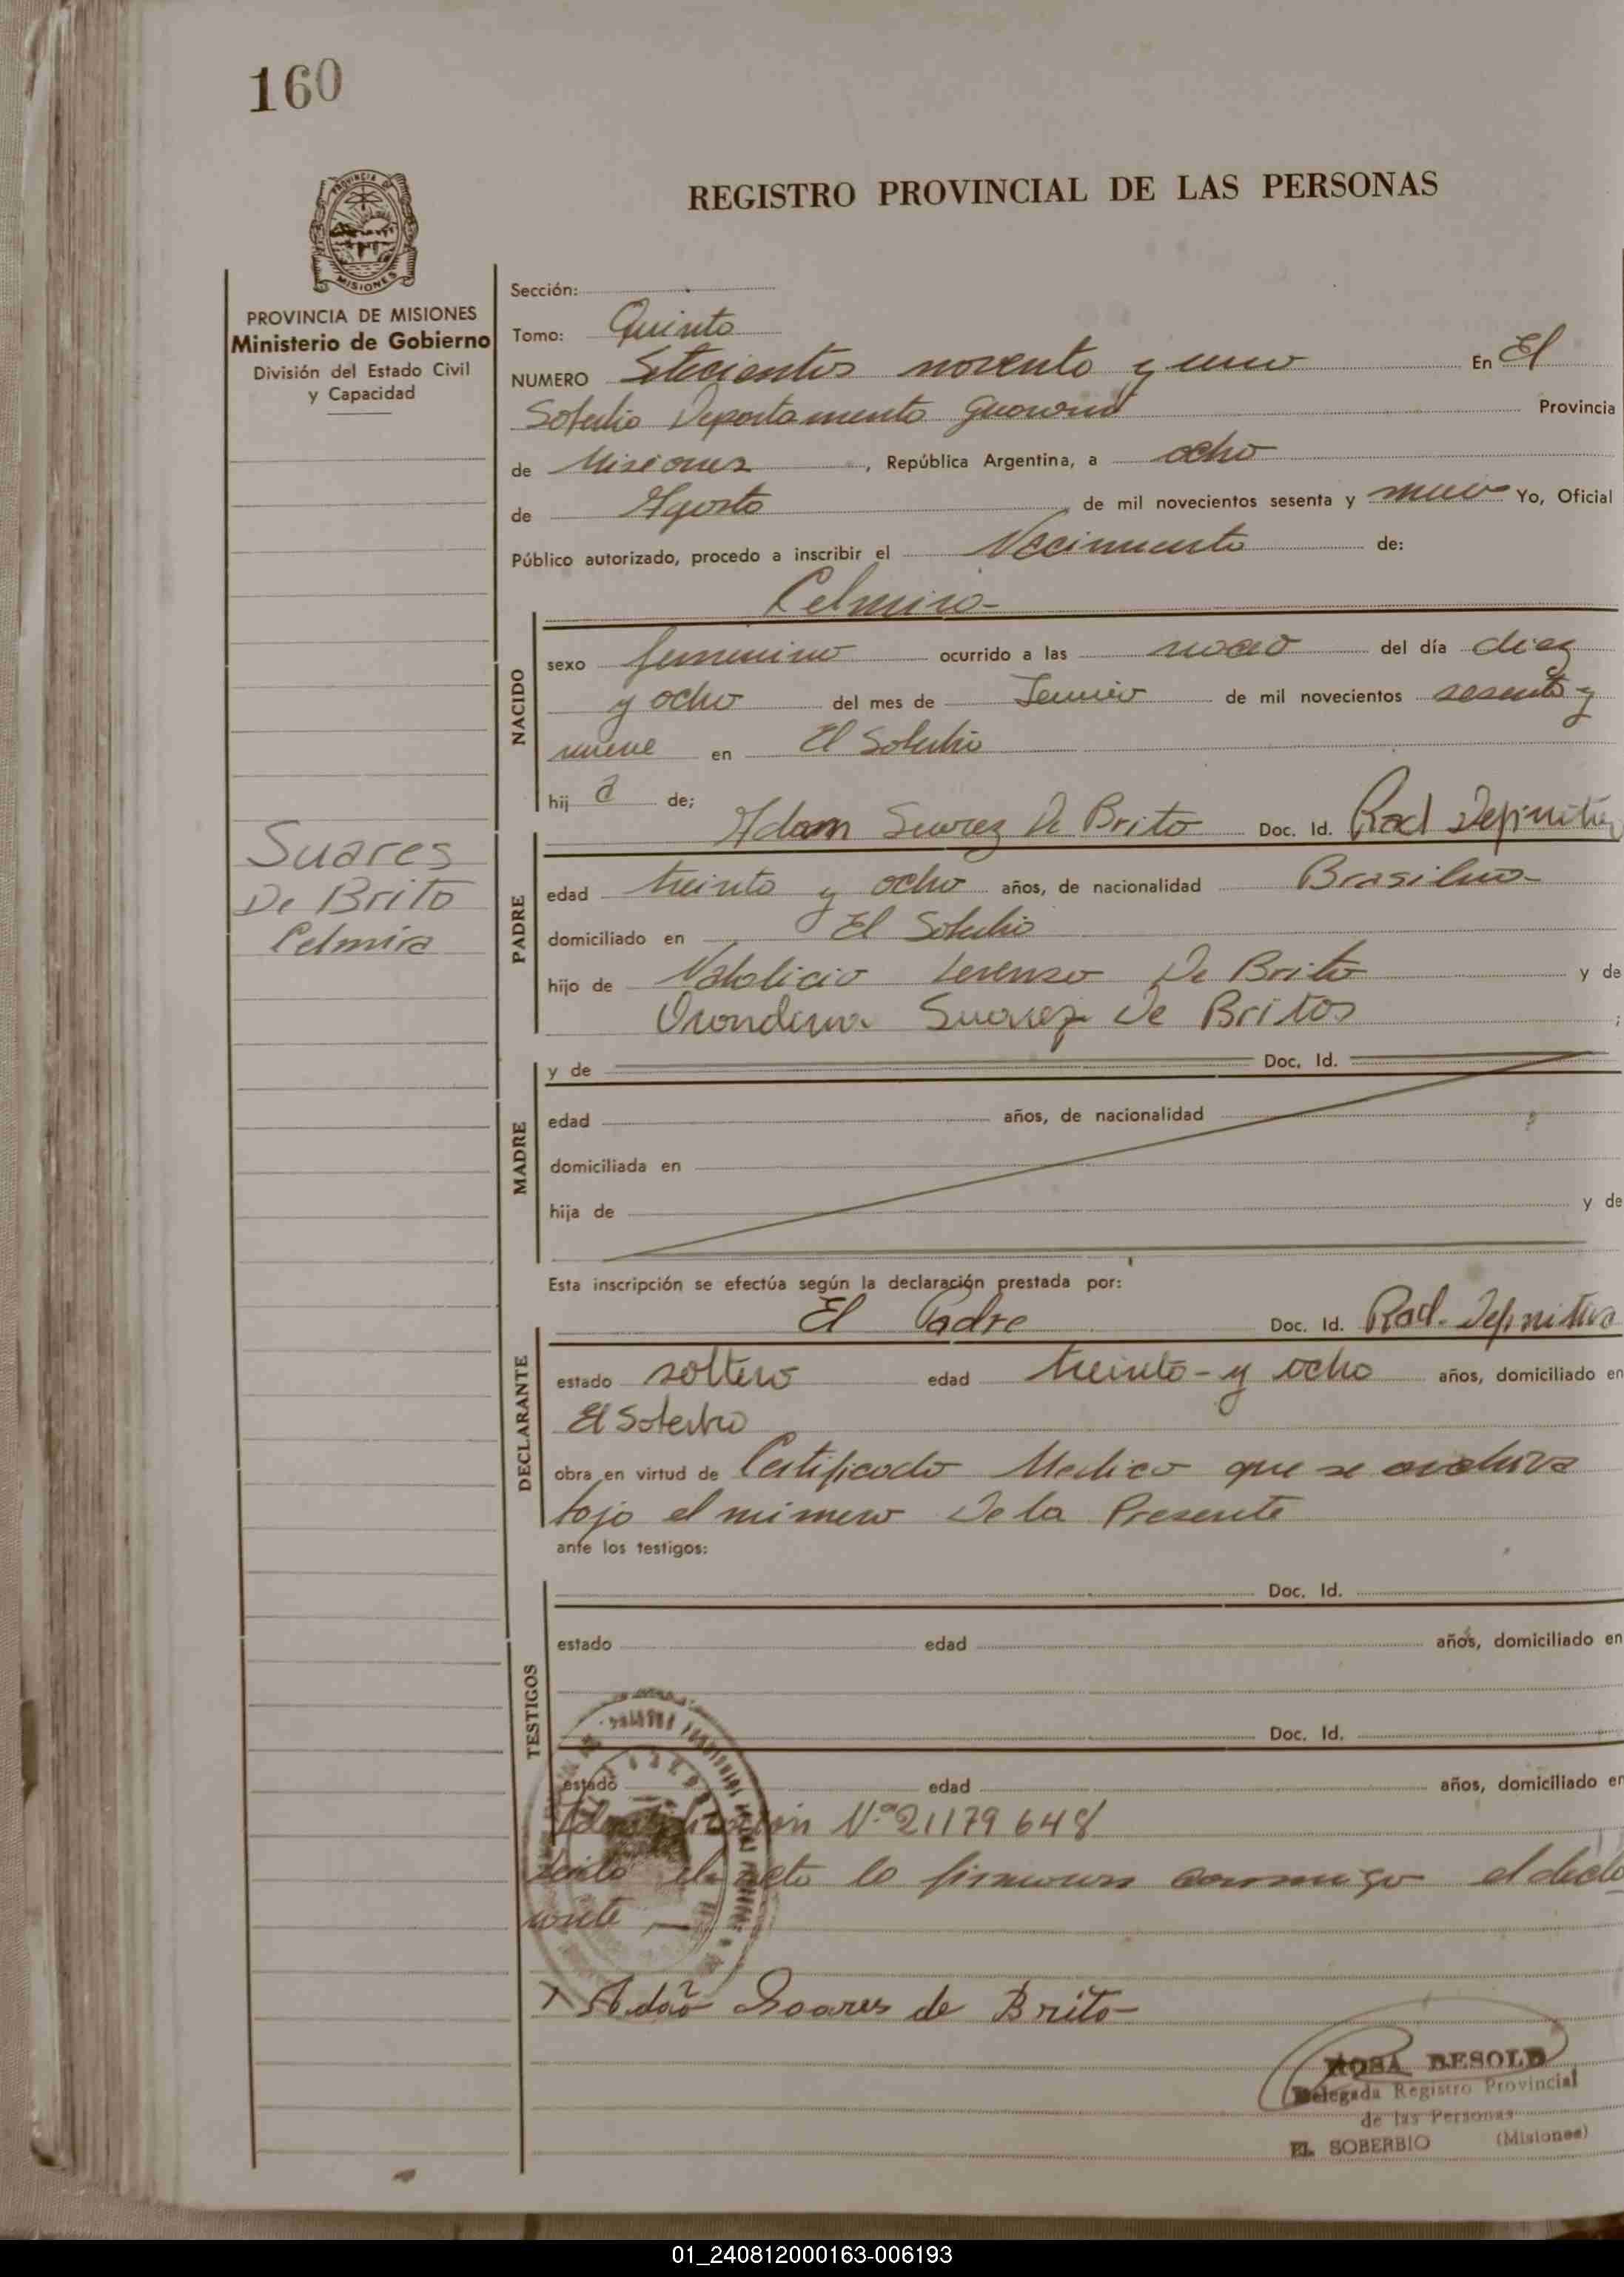 160
REGISTRO PROVINCIAL DE LAS PERSONAS
PROVINCIA DE
MISIONES
PROVINCIA DE MISIONES
Ministerio de Gobierno
División del Estado Civil
y Capacidad
Sección:
Tomo: Quinto
NUMERO Setecientos noventa y uno En El
Soberbio Departamento Guarani Provincia
de Misiones, República Argentina, a ocho
de Agosto de mil novecientos sesenta y nueve Yo, Oficial
Público autorizado, procedo a inscribir el Nacimiento de:
Celmira-
NACIDO
sexo femenino ocurrido a las del día diez
y ocho del mes de de mil novecientos sesenta y
nueve en El Soberbio
hij a de;
Suares
De Brito
Celmira
PADRE
Adam Suarez De Brito Doc. Id. Rad Definitiva
edad treinta y ocho años, de nacionalidad Brasilera-
domiciliado en El Soberbio
hijo de Natalicio Lorenso De Brito y de
Suarez De Britos ;
MADRE
y de Doc. Id.
edad años, de nacionalidad
domiciliada en
hija de y de
Esta inscripción se efectúa según la declaración prestada por:
DECLARANTE
El Padre Doc. Id. Rad. Definitiva
estado soltero edad treinta-y ocho años, domiciliado en
El Soberbio
obra en virtud de Certificado Medico que se archiva
bajo el numero De la Presente
ante los testigos:
TESTIGOS
Doc. Id.
estado edad años, domiciliado en
Doc. Id.
estado edad años, domiciliado en
Identificación Nº 21179648
acta lo firman conmigo el decla
rante —
Adaõ Soares de Brito-
ROSA BESOLD
Delegada Registro Provincial
de las Personas
EL SOBERBIO (Misiones)
01_240812000163-006193